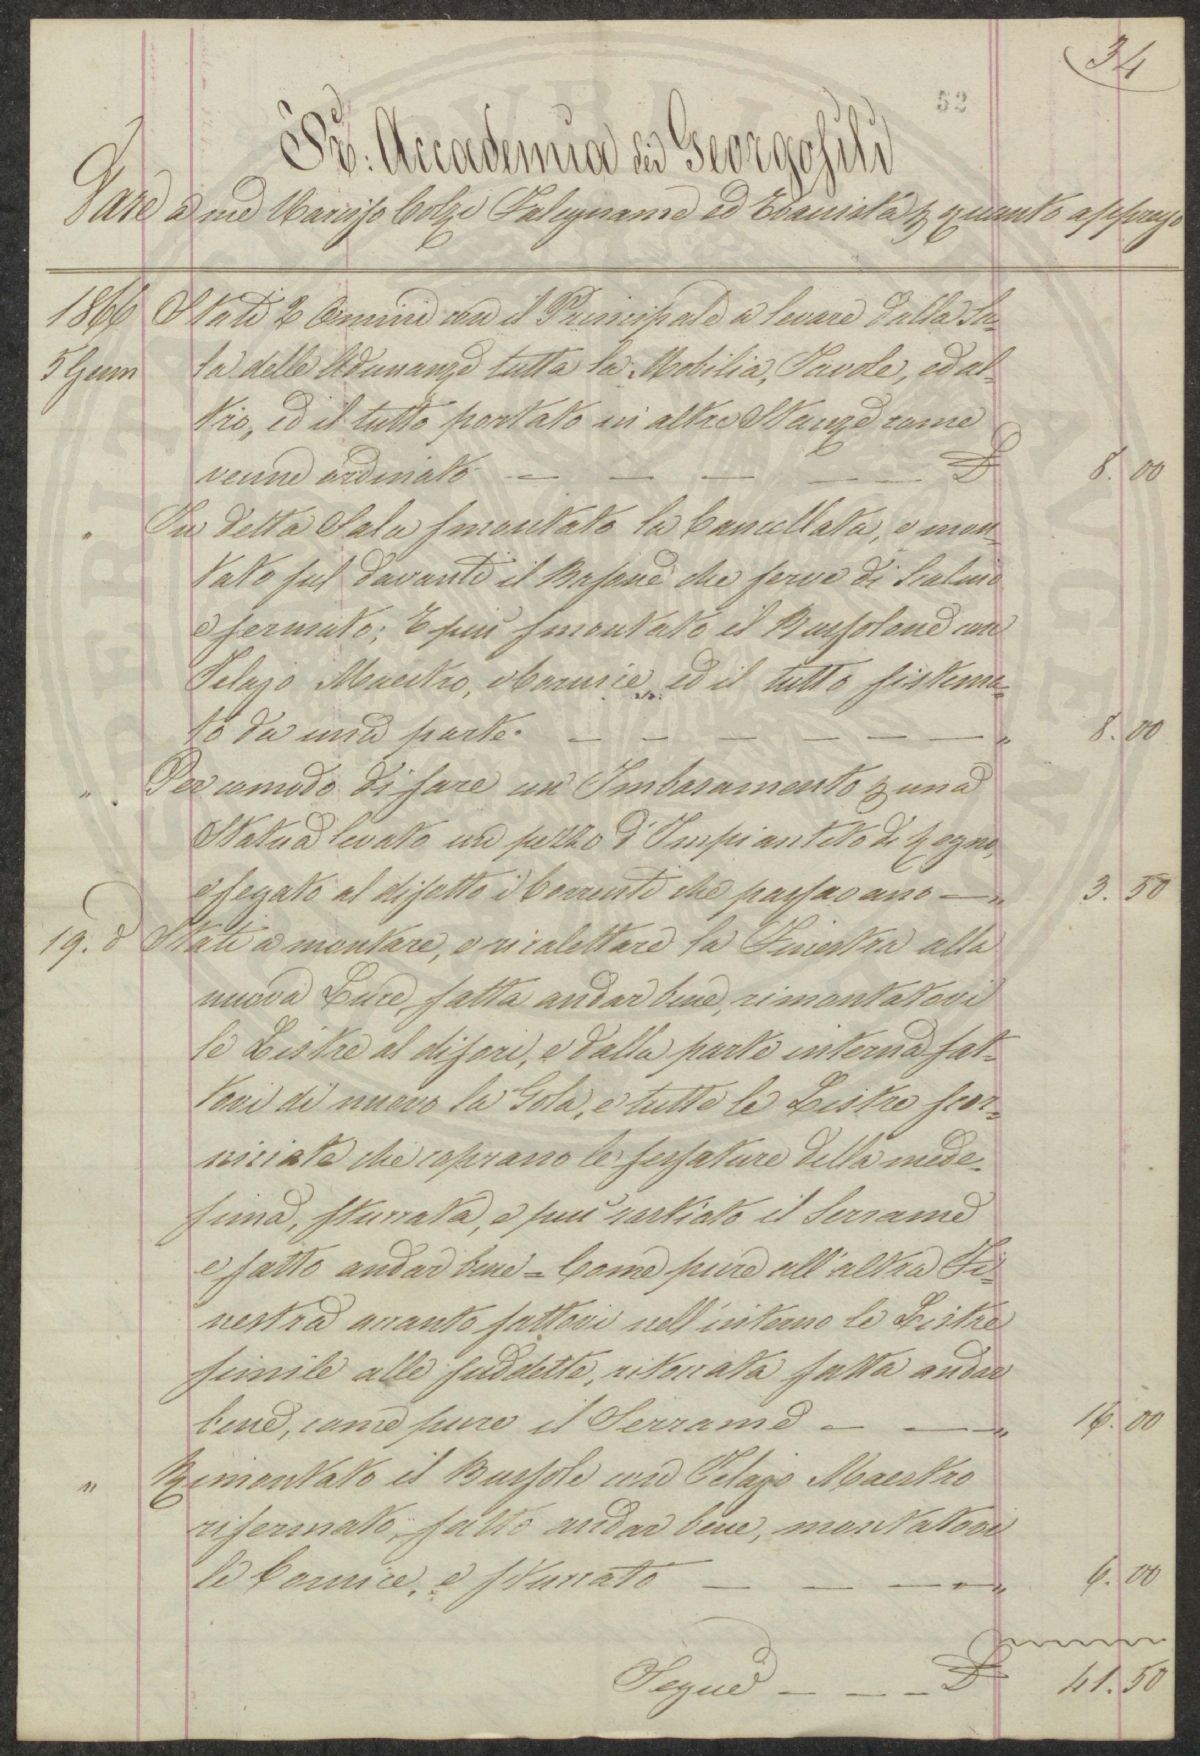 34
52
R. Accademia dei Georgofili
Dare a me Narciso Colzi Falegname ed Ebanista p quanto appresso
1866 Stati 2 Omini con il Principale a levare dalla Sa-
5 Genn la delle Adunanze tutta la Mobilia, Tavole, ed al-
tro, ed il tutto portato in altre Stanze come
venne ordinato — — — — — £ 8.00
" In detta Sala smontato la Cancellata, e mon-
tato sul davanti il che serve di Scalino
e fermato; E più smontato il Bussolone con
Telajo Maestro, Cornicie, ed il tutto sistema-
to da una parte. — — — — — — " 8.00
" Per comodo di fare un Imbasamento p una
Statua levato un pezzo d'Impiantito di Legno,
e segato al disotto i Correnti che passavano — " 3.50
19. d Stati a montare, e ricalettare la Finestra alla
nuova Luce, fatta andar bene, rimontatovi
le Listre al difori, e dalla parte interna fat-
tovi di nuovo la Gola, e tutte le Listre scor-
niciate che coprano le fessature della mede-
sima, stuccata, e più rastiato il Serrame
e fatto andar bene = Come pure all'altra Fi-
nestra accanto fattovi nell'interno le Listre
simile alle suddette, ritoccata fatta andar
bene, come pure il Serrame — — — " 16.00
" Rimontato il Bussole con Telajo Maestro
rifermato, fatto andar bene, montatovi
le Cornice, e stuccato — — — — " 6.00
Segue — — — £ 41.50